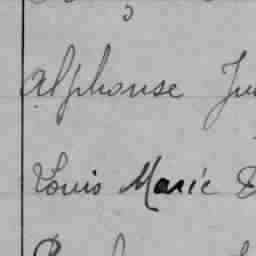 Alphonse Ju
Louis Marie